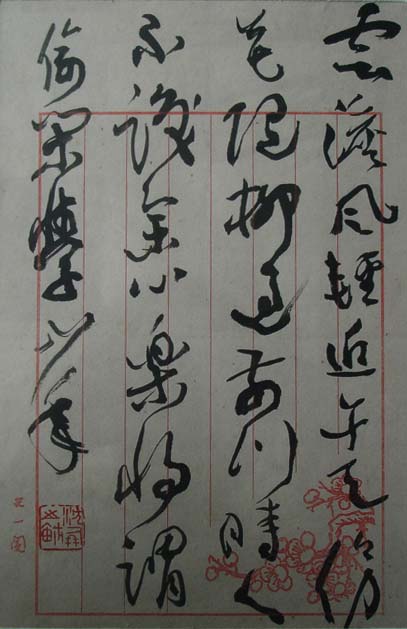 雲淡風輕近午天傍
花隨柳過前川時人
不識余心樂將謂
偷閑學少年